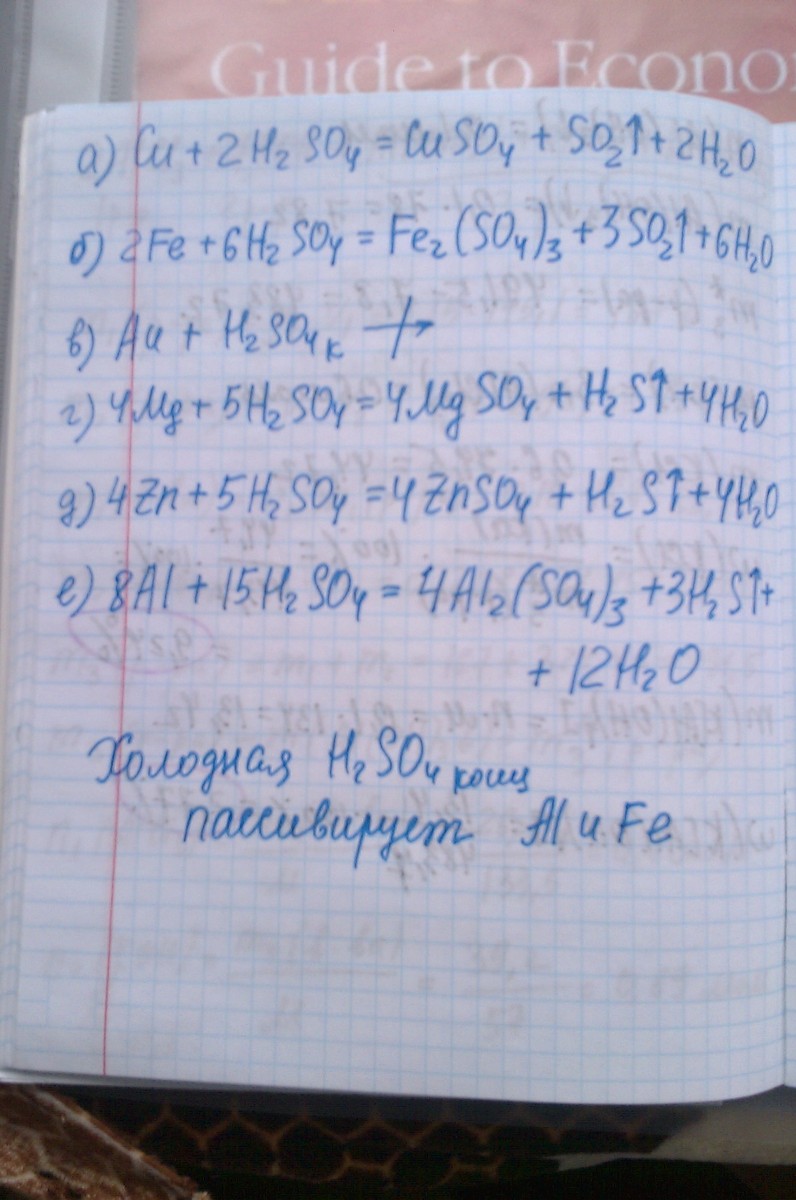 Guide to Econo
а) Cu + 2H₂SO₄ = CuSO₄ + SO₂↑ + 2H₂O
б) 2Fe + 6H₂SO₄ = Fe₂(SO₄)₃ + 3SO₂↑ + 6H₂O
в) Au + H₂SO₄ к ↛
г) 4Mg + 5H₂SO₄ = 4MgSO₄ + H₂S↑ + 4H₂O
д) 4Zn + 5H₂SO₄ = 4ZnSO₄ + H₂S↑ + 4H₂O
е) 8Al + 15H₂SO₄ = 4Al₂(SO₄)₃ + 3H₂S↑ +
+ 12H₂O
Холодная H₂SO₄ конц
пассивирует Al и Fe